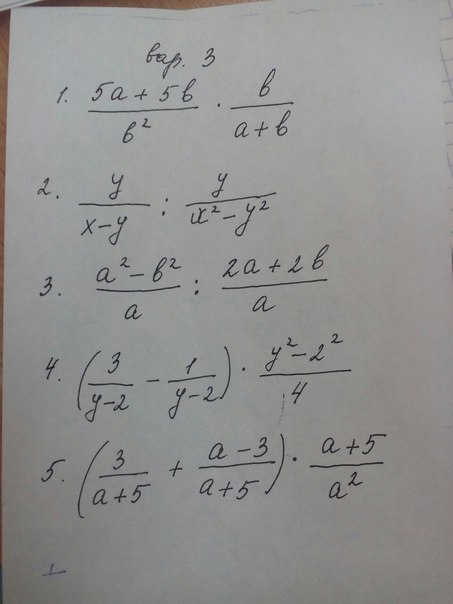 вар. 3
1. (5a + 5b)/b² · b/(a + b)
2. y/(x - y) : y/(x² - y²)
3. (a² - b²)/a : (2a + 2b)/a
4. (3/(y - 2) - 1/(y - 2)) · (y² - 2²)/4
5. (3/(a + 5) + (a - 3)/(a + 5)) · (a + 5)/a²